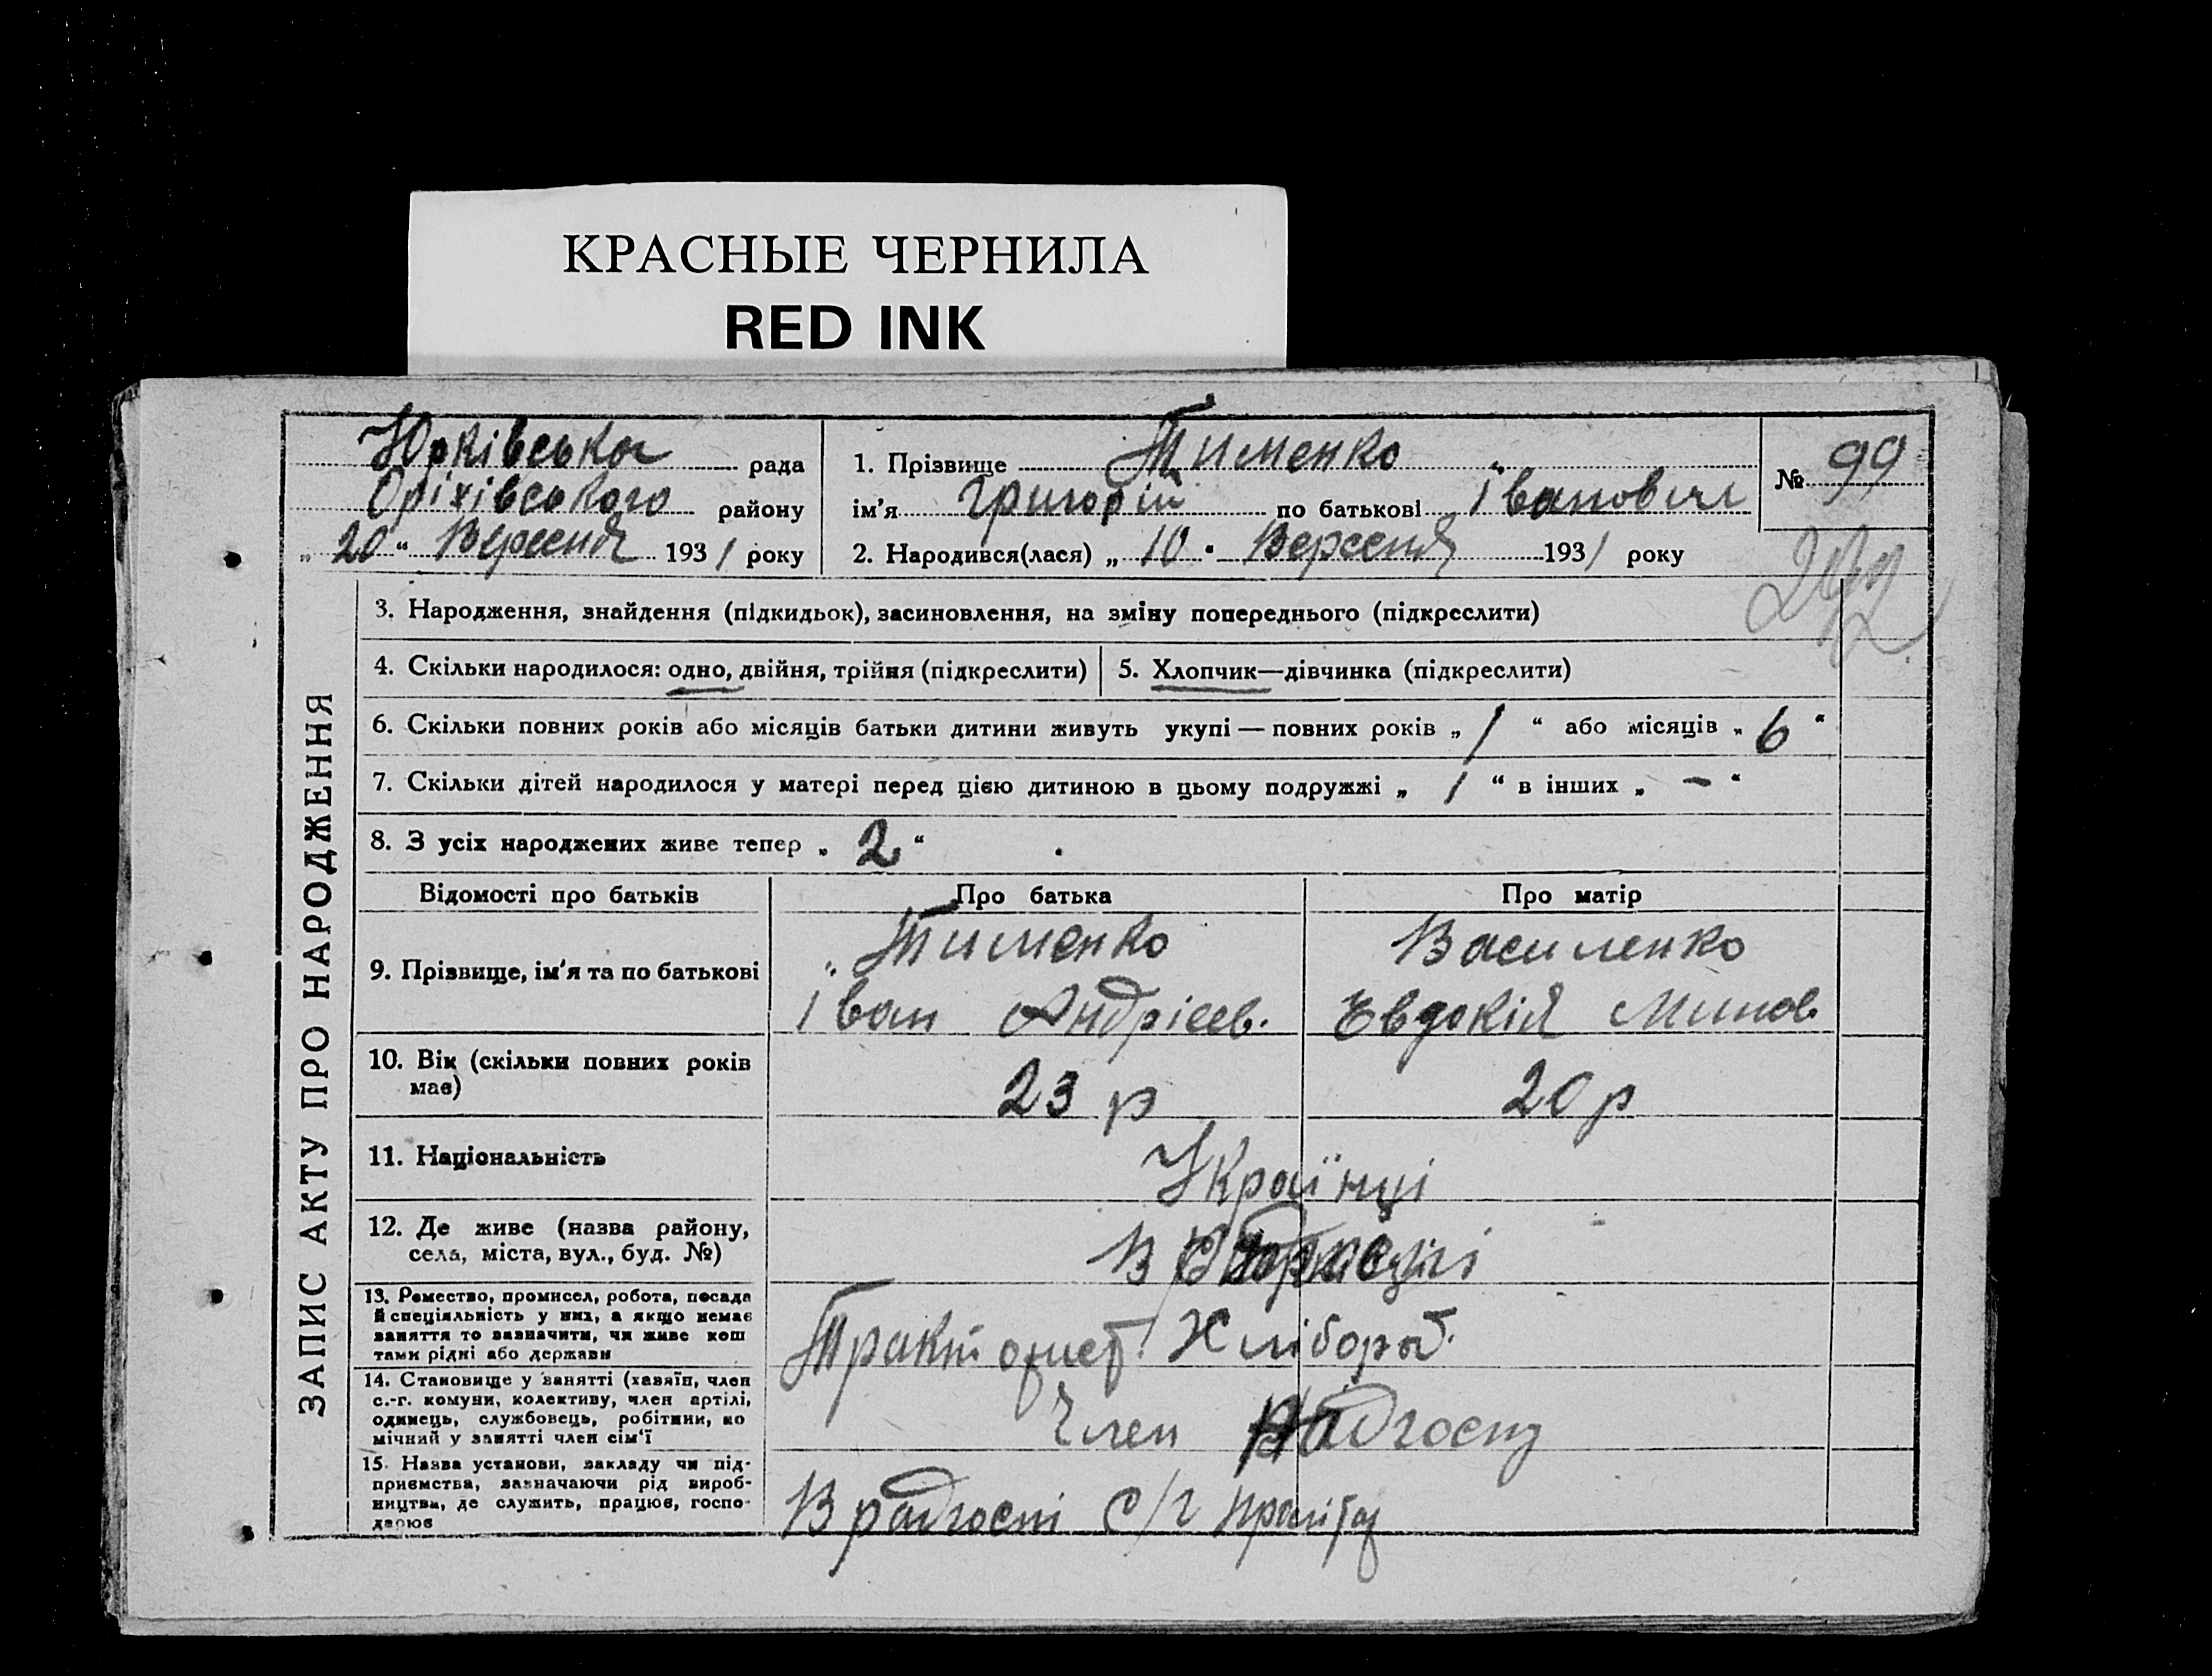 КРАСНЫЕ ЧЕРНИЛА
RED INK
Юрківська рада
Оріхівського району
„ 20 “ Вересня 1931 року
1. Прізвище Тименко
ім'я Григорій по батькові Іванович
2. Народився(лася) „ 10 " Вересня 1931 року
№ 99
ЗАПИС АКТУ ПРО НАРОДЖЕННЯ
3. Народження, знайдення (підкидьок), засиновлення, на зміну попереднього (підкреслити)
4. Скільки народилося: одно, двійня, трійня (підкреслити)
5. Хлопчик—дівчинка (підкреслити)
6. Скільки повних років або місяців батьки дитини живуть укупі — повних років „ 1 “ або місяців „ 6 “
7. Скільки дітей народилося у матері перед цією дитиною в цьому подружжі „ 1 “ в інших „ – “
8. З усіх народжених живе тепер „ 2 “
Відомості про батьків
Про батька
Про матір
9. Прізвище, ім'я та по батькові
Тименко
Іван Андрієв.
Василенко
Евдокія Минов.
10. Вік (скільки повних років
має)
23 р
20 р
11. Національність
Українці
12. Де живе (назва району,
села, міста, вул., буд. №)
В
13. Ремество, промисел, робота, посада
й спеціяльність у них, а якщо немає
заняття то зазначити, чи живе кош
тами рідні або держави
Тракторист. Хлібороб.
14. Становище у занятті (хазяїн, член
с.-г. комуни, колективу, член артілі,
одинець, службовець, робітник, по
мічний у занятті член сім'ї
Член Радгоспу
15. Назва установи, закладу чи під-
приємства, зазначаючи рід вироб-
ництва, де служить, працює, госпо-
дарює
В радгоспі с/г